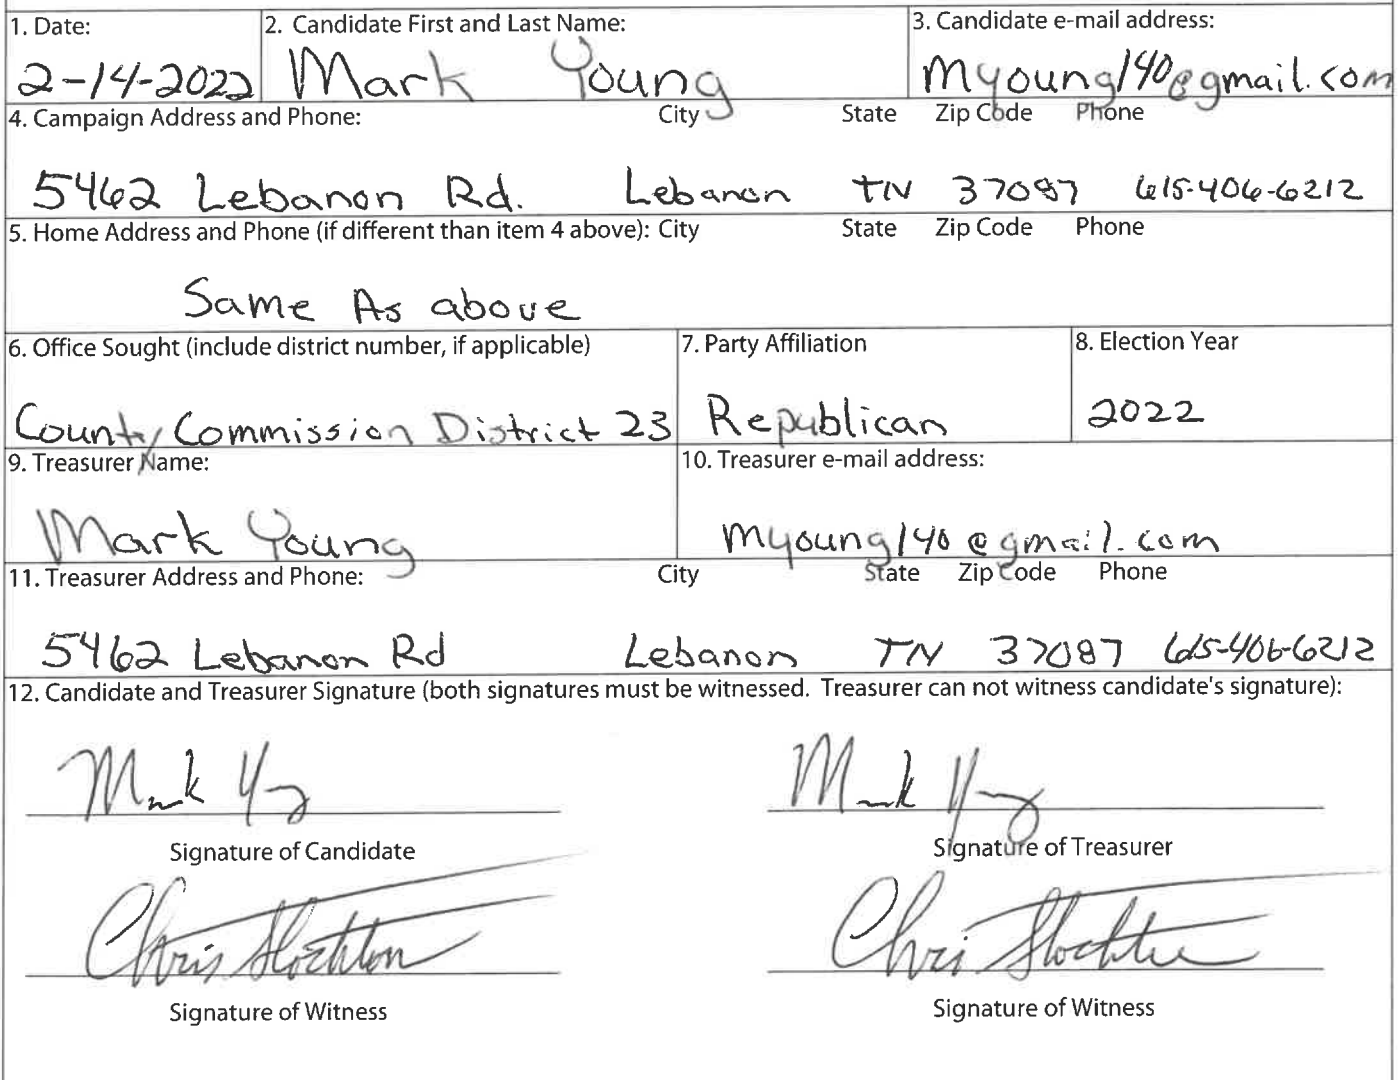 1. Date: 2. Candidate First and Last Name: 3. Candidate e-mail address:
2-14-2022 Mark Young myoung140@gmail.com
4. Campaign Address and Phone: City State Zip Code Phone
5462 Lebanon Rd. Lebanon TN 37087 615-406-6212
5. Home Address and Phone (if different than item 4 above): City State Zip Code Phone
Same As above
6. Office Sought (include district number, if applicable) 7. Party Affiliation 8. Election Year
County Commission District 23 Republican 2022
9. Treasurer Name: 10. Treasurer e-mail address:
Mark Young myoung140@gmail.com
11. Treasurer Address and Phone: City State Zip Code Phone
5462 Lebanon Rd Lebanon TN 37087 615-406-6212
12. Candidate and Treasurer Signature (both signatures must be witnessed. Treasurer can not witness candidate's signature):
Mark Young Mark Young
Signature of Candidate Signature of Treasurer
Chris Stockton Chris Stockton
Signature of Witness Signature of Witness